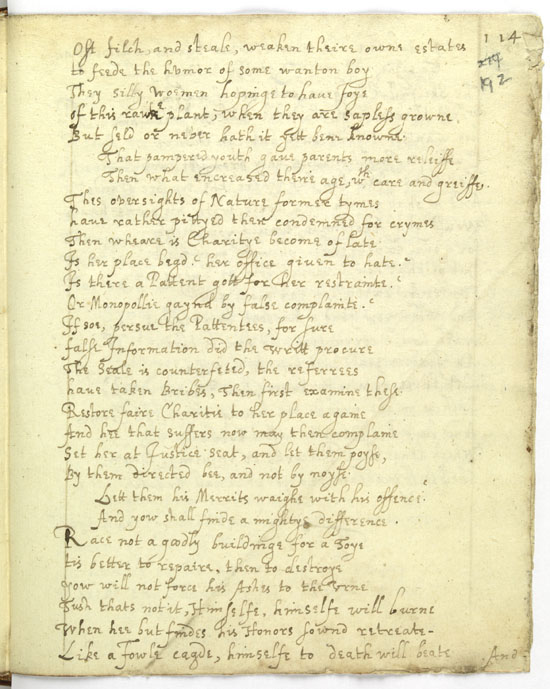 114
274
192
Oft filch, and steale, weaken theire owne estates
to feede the humor of some wanton boy
They silly woemen hopinge to have Joye
of this ranke plant, when they are sapless growne,
But seld or never hath it yett bene knowne
That pampered youth gave parents more releiffe
Then what encreased theire age, wth care and greiffe,
Thes oversights of Nature former tymes
have rather pittyed then condemned for crymes
Then wheare is Charitye become of late
Is her place begd? her office given to hate?
Is there a Pattent gott for her restrainte?
Or Monopollie gaynd by false complainte?
If soe, persue the Pattentees, for sure
false Information did the writt procure
The Seale is counterfeted, the referrees
have taken Bribes, Then first examine these
Restore faire Charitie to her place againe
And hee that suffers now may then complaine
Set her at Justice seat, and let them poyse,
By them directed bee, and not by noyse
Lett them his Merrits waighe with his offence
And yow shall finde a mightye difference.
Race not a goodly buildinge for a Toye
tis better to repaire, then to destroye
yow will not force his Ashes to the Urne
Tush thats not it, Himselfe, himselfe will burne
When hee but findes his Honors sownd retreate
Like a Fowle cagde, himselfe to death will beate
And